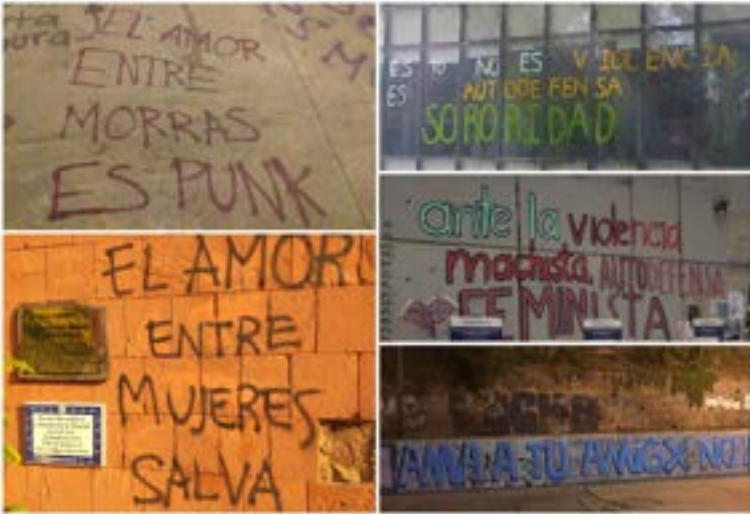 EL AMOR
ENTRE
MORRAS
ES PUNK
ESTO NO ES VIOLENCIA
ES AUTODEFENSA
SORORIDAD
ante la violencia
machista AUTODEFENSA
FEMINISTA
EL AMOR
ENTRE
MUJERES
SALVA
AMA A TU AMIGX NO